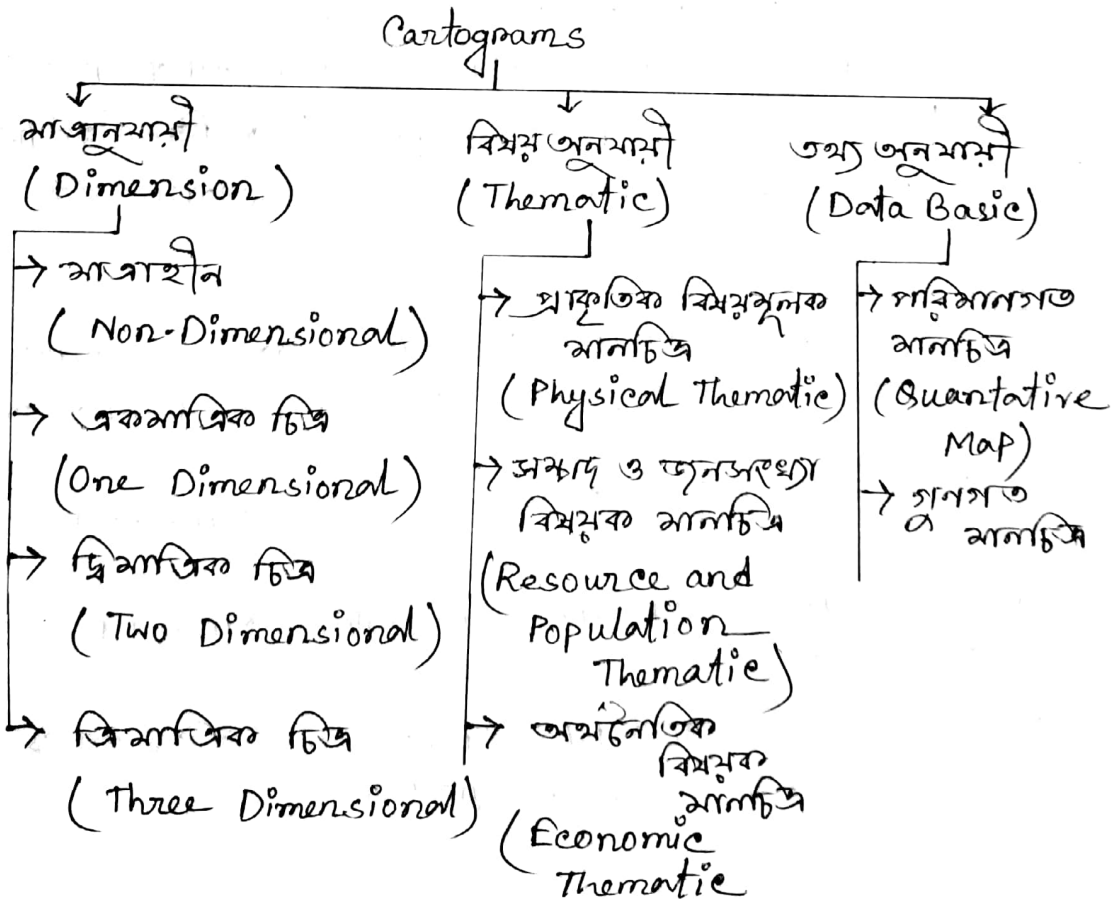 Cartograms
মাত্রানুযায়ী
(Dimension)
→ মাত্রাহীন
(Non-Dimensional)
→ একমাত্রিক চিত্র
(One Dimensional)
→ দ্বিমাত্রিক চিত্র
(Two Dimensional)
→ ত্রিমাত্রিক চিত্র
(Three Dimensional)
বিষয় অনুযায়ী
(Thematic)
→ প্রাকৃতিক বিষয়মূলক
মানচিত্র
(Physical Thematic)
→ সম্পদ ও জনসংখ্যা
বিষয়ক মানচিত্র
(Resource and
Population
Thematic)
→ অর্থনৈতিক
বিষয়ক
মানচিত্র
(Economic
Thematic
তথ্য অনুযায়ী
(Data Basic)
→ পরিমানগত
মানচিত্র
(Quantative
Map)
→ গুনগত
মানচিত্র